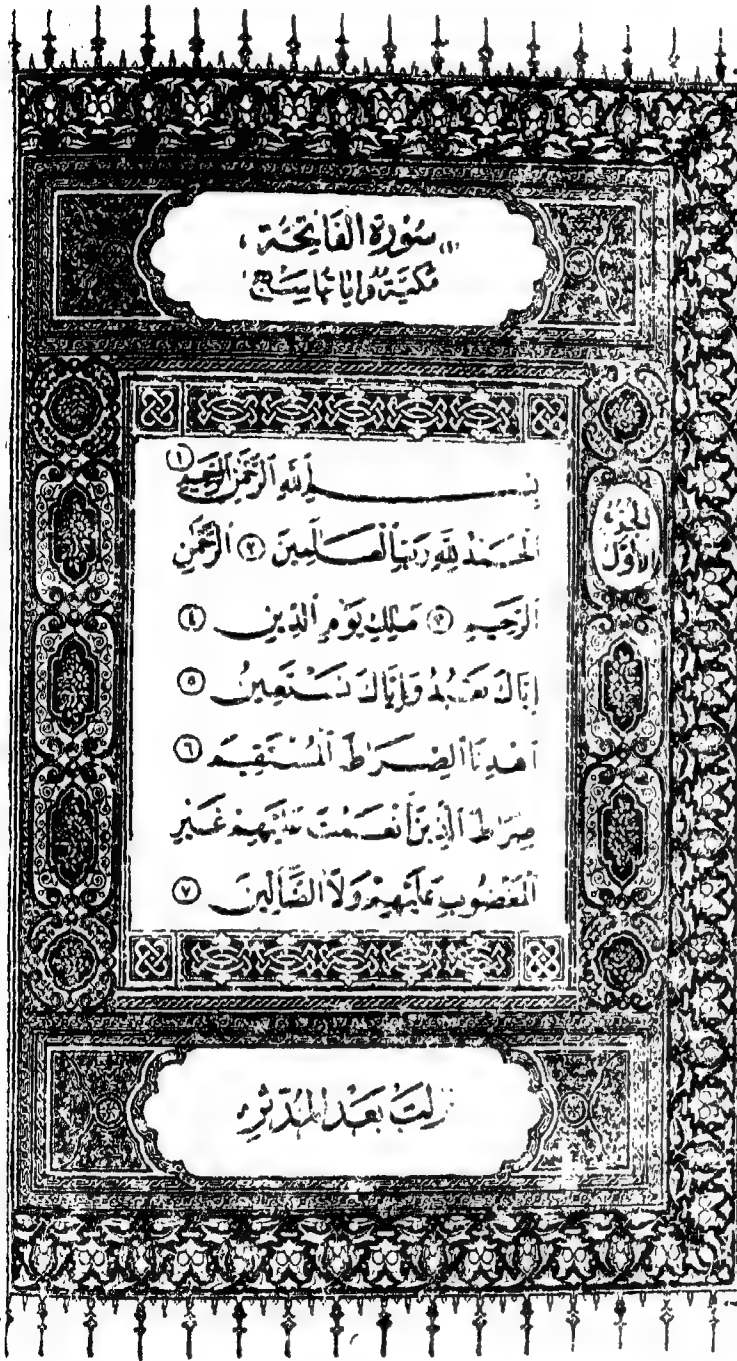 (١) سُورَةُ الفَاتِحَة
مَكيّة وَآيَاتهَا سَبع
بِسْمِ ٱللَّهِ ٱلرَّحْمَٰنِ ٱلرَّحِيمِ ١
ٱلْحَمْدُ لِلَّهِ رَبِّ ٱلْعَٰلَمِينَ ٢ ٱلرَّحْمَٰنِ
ٱلرَّحِيمِ ٣ مَٰلِكِ يَوْمِ ٱلدِّينِ ٤
إِيَّاكَ نَعْبُدُ وَإِيَّاكَ نَسْتَعِينُ ٥
ٱهْدِنَا ٱلصِّرَٰطَ ٱلْمُسْتَقِيمَ ٦
صِرَٰطَ ٱلَّذِينَ أَنْعَمْتَ عَلَيْهِمْ غَيْرِ
ٱلْمَغْضُوبِ عَلَيْهِمْ وَلَا ٱلضَّآلِّينَ ٧
الجزء
الأول
نزلت بَعْدَ المُدَّثِّر